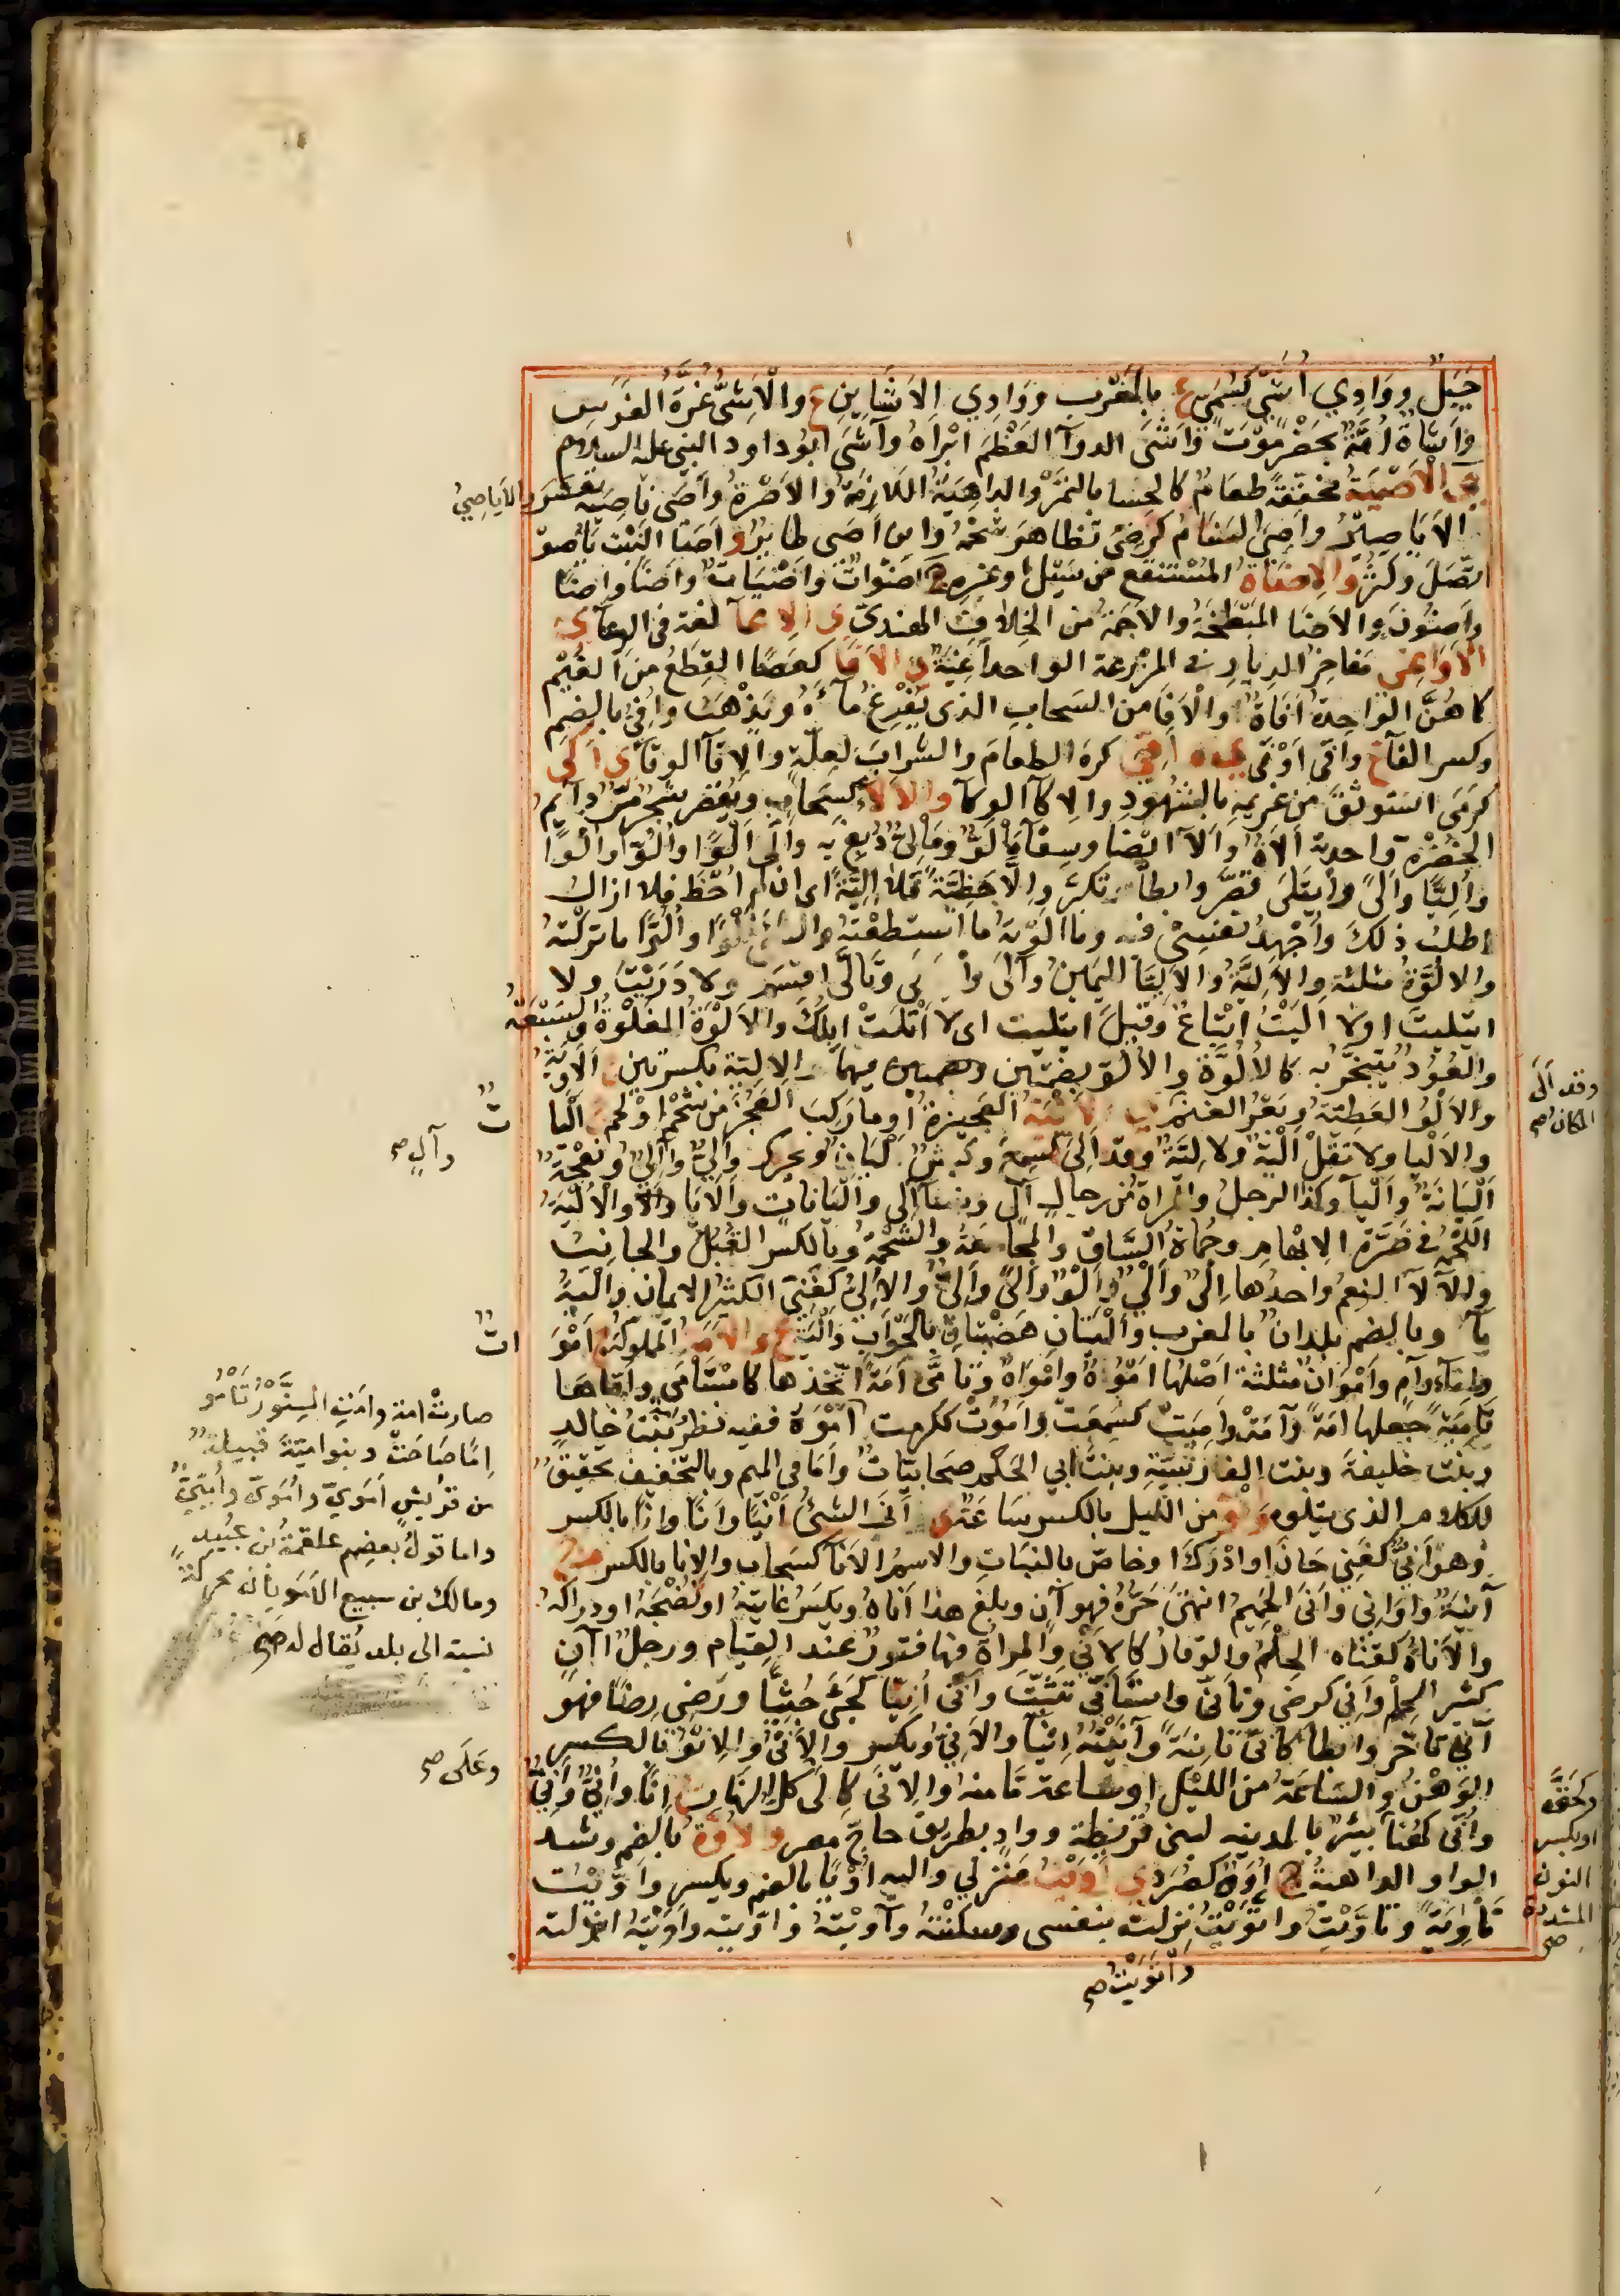 جَبَلٌ ووَادِي أُشَيٍّ كسُمَيٍّ ع بالمَغْرِب ووَادِي الاَشَايِنِ ع والْاَشِىُّ غُرَّةُ الفَرَسِ
وَاَشَاةُ اُمَّةٌ بحَضْرَمَوْتَ وَاَشَى الدوآ العَظْمَ ابْرَاهُ وآشَى ابُو داود النبى عليه السلام
ى الْاَصِيَةُ مخففةً طعامٌ كالحسا بالتمْرِ والداهِيَةُ اللازمَةُ والاَصْرةُ وآصَى نَاصِيَةً تعسر
الايَاصِرُ واَصِىَ السَنَامُ كرَضِىَ تظاهرَ شحْمُهُ وابن آصَى طايرٌ و اَضَا النَبْتُ يَاصُو
اتَّصَلَ وكَثُرَ والاَضاةُ المُسْتَنْقَع من سَيْلٍ وغيرهِ ج اَضَوَاتٌ واَضَيَاتٌ واَضًا واِضًا
واِضُونَ والاَضَا المَبْطَخَةُ والاَجَمَةُ من الخِلافِ الهِندىّ ى الاِعآ لغة فى الوِعآ ى
الاَوَاغى مَفاجِرُ الدِبارِ فى المَزْرعة الواحد آغِيَةٌ ى الاَفَا كعَصًا القِطَعُ من الغَيْمِ
كاهُنَّ الواحِدةُ اَفَاةٌ والْاَفَا من السَحابِ الذى يُفْرِغُ مآءَهُ ويَذْهَبُ واُفِىَ بالضم
وكسر الفآ ع وآفَى اَوْفَى اَقَى كره الطعامَ والشرابَ لعِلّةٍ والاِقآ الوِقآ ى اَكَى
كرَمَى استوثقَ من غرِيمهِ بالشُهودِ والاِكآ الوِكآ والْاَلآ كسَحابٍ ويُقْصَر شجرٌ مرٌّ دآيمُ
الخضْرَةِ واحدتهُ اَلآةٌ واَلآ ايْضًا وسِقآ مَاْلُوٌّ ومَاْلِىٌّ دُبِغَ بِهِ واَلَى اَلْوًا واُلُوًّا واَلْوًا
واُلِيًّا واَلّى وايتَلَى قصّر وابطأ وتكبّر واِلّا حَظِيّةً فَلَا اَلِيَّةً اى ان لم اُحْظَ فلا ازالُ
اطلبُ ذلكَ واُجْهِدُ نفسِى فيه وما اَلَوْتهُ ما اسْتطعْتهُ والشئَ اَلْوًا واُلُوًّا ما تركتهُ
والالُوَّةُ مثلثة والاَلِيَّةُ والاَلِيّا اليَمينُ وآلَى وايْتَلَى وتَاَلَّى اقسَمَ ولا دَرَيْتَ ولا
ايتَلَيتَ اولا اَلَيْتَ اتباع وقيل ايتليت اى لا اَتْلَتْ ابِلُكَ والاَلْوَةُ الغَلْوةُ والسَبْقةُ
والعُودُ يُتبخّرُ بهِ كالاُلُوَّةِ والالُوّ بضمتين فيهما والالِيّة بكسرتين ج الاَوِيَةُ
والاَلْوُ العَطيّةُ وبَعْرُ الغَنَمِ ى الاَلْيَةُ العَجيزةُ او ما رَكِبَ العَجُزَ من شَحْمٍ او لحمٍ ج اَلْيَا
والاَلايا ولا تقُلْ اِلْيَةٌ ولا لِيَّةٌ وقد اَلِىَ كسَمِعَ وكَبْشٌ اَلْيَانٌ ويحرك واَلِىٌ وآلٍ ونَعْجَةٌ
اَلْيَانَةٌ واَلْيآ وكذا الرجلُ والمراةُ من رجالٍ اُلْىٍ ونسآ اُلْىٍ واَلْيَاناتٍ واَلايا والآ والاَلْيَةُ
اللَحْمةُ فى ضَرَّةِ الابهامِ وحَماةُ السَاق والمجَاعَةُ والشَحْمةُ وبالكسر القِبَلُ والجانِبُ
والآلآ النِعَم واحدُها اِلْىٌ واَلْىٌ واَلْوٌ واَلًى واِلًى والاَلِىُّ كغَنىٍّ الكثيرُ الايمان واَلْيَةُ
مآ وبالضم بلدانِ بالمغرب واَلْيَتانِ هَضْبتانِ بالحَوْاَبِ واَلْيَةُ ع و الاَمَةُ المملوكَةُ ج اَمَوَ
واِمآ وآمٍ واَمْوَانٌ مثلثة اصلُها اَمَوَةٌ واَمْوَةٌ وتَاَمَّى اَمَةً اتّخذها كاسْتَاْمَى واَمّاها
تَاْمِيَةً جعلها امَةً وآمَتْ واَمِيَتْ كسَمِعَتْ واَمُوَتْ ككرمت اُمُوَّةً ففيه نظر بنْتُ خالدٍ
وبنْت خليفةَ وبنت الفارسيّةِ وبنتُ ابى الحَكم صحابيّاتٌ واَمَا فى الميم وبالتخفيف تحقيقٌ
للكلام الذى يتلوه و اِنْوٌ من الليل بالكسر سَاعةٌ ى اَنَى الشئُ اَنْيًا واَنًا واِنًا بالكسر
وهو اَنِىٌّ كغَنىٍّ حَانَ او ادْرَكَ او خاصّ بالنبَاتِ والاسمُ الاَنا كسَحابٍ والانا بالكسر م ج
آنِيةٌ واَوَانى واَنَى الحَمِيمُ انتهَى حَرُّهُ فهو آنٍ وبلغ هذا اَناهُ ويكسَرُ غايتَهُ او نُضْجَهُ او ادراكَهُ
والاَناةُ كقَناةٍ الحِلْمُ والوقارُ كالاَنَى والمراةُ فيها فتورٌ عند القيامِ ورجلٌ آنٍ
كثير الحِلْمِ واَنِىَ كرضى وتاَنَّى واستَاْنَى تثبّتَ واَنَى اُنِيًّا كجَثَى جُثِيًّا ورَضِىَ رِضًا فهو
اَنِىٌّ تاخّر وابطأ كانَّى تَانِيَةً وآنَيْتهُ اِينآ والاَنْىُ ويكسر والاَنآ والاِنْوُ بالكسر
الوَهْنُ والسَاعَةُ من الليْلِ او ساعة مَّا منهُ والاِنَى كاِلَى كلُّ النهارِ ج آنا واُنِىٌّ واِنِىٌّ
واُنَى كهُنا بيئر بالمدينة لبنى قريظة ووادٍ بطريق حاجّ مصر و الاُوَّةُ بالضم وشد
الواو الداهيةُ ج اُوَوٌ كصُرَدٍ ى اَوَيْتُ منْزِلى واليه اُوِيًّا بالضم ويكسر واَوَّيْتُ
تَاْوِيَةً وتَاَوَّيْتُ واتَّوَيْتُ نزلت بنفسى وسكنْتُهُ وآوَيْتُهُ واوّيته واَوَيْتهُ انزلته
وأْتَوَيْتُ صح
والاَياصِىُ
وقد اَلَى
المكانُ صح
ت
وآلٍ صح
ات
صارتْ امة وامَتِ السِنَّوْرُ تَامُو
اِمًا صَاحَتْ وبنو اميّة قبيلةٌ
من قريش اَمَوِىّ واُمَوِىّ واُمَيّىّ
واما قولُ بعضِهم علقمةُ بن عُبَيدٍ
ومالك بن سبيع الاَمَوِيان محركةً
نسبة الى بلد يُقال له صح
وعَلَى صح
وكحَتَّى
او بكسر
النون
المشددة
صح